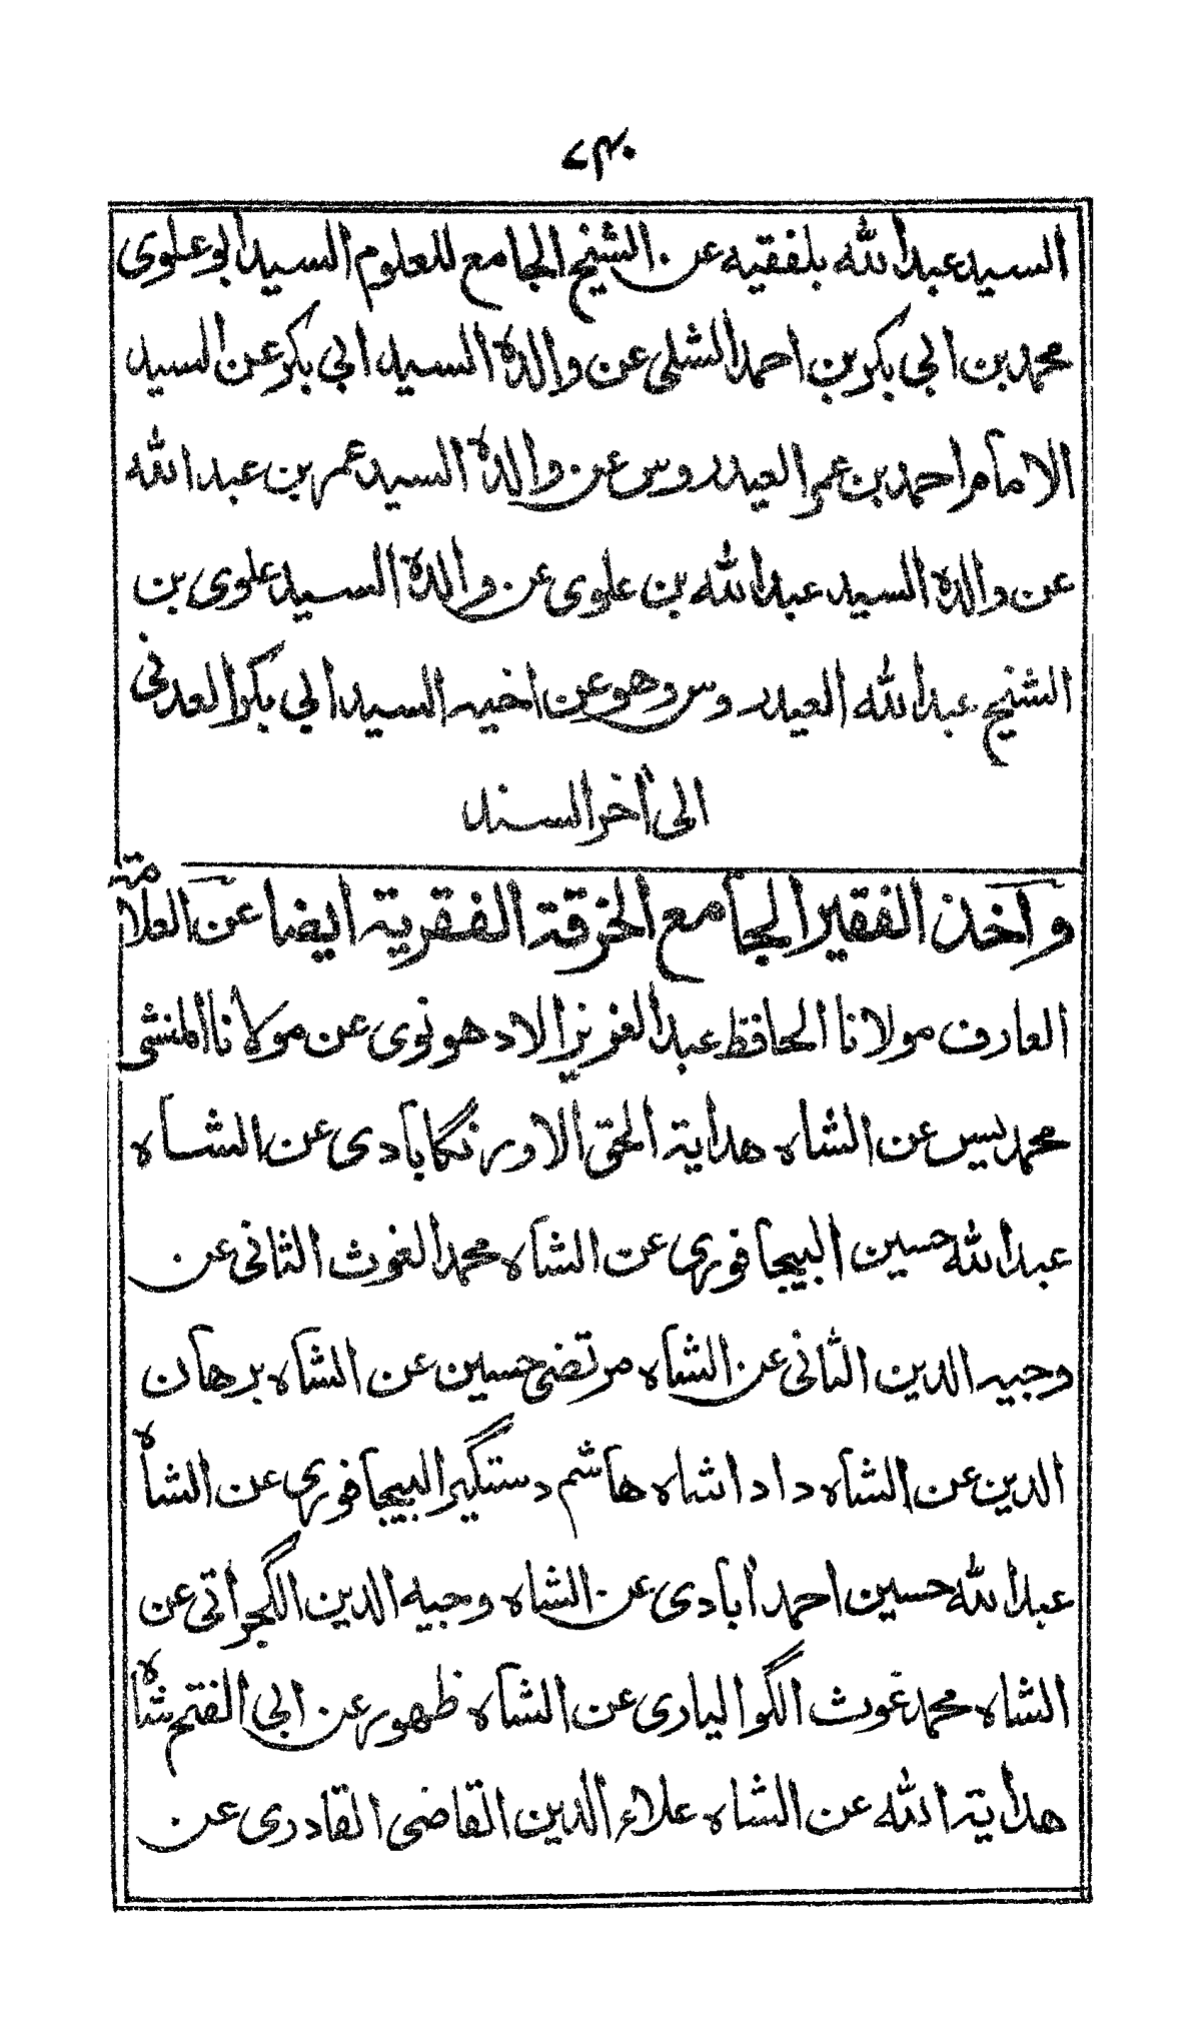 ٧٤٠
السيد عبد الله بلفقيه عن الشيخ الجامع للعلوم السيد ابو علوى
محمد بن ابى بكر بن احمد الشلى عن والده السيد ابى بكر عن السيد
الامام احمد بن عمر العيدروس عن والده السيد عمر بن عبد الله
عن والده السيد عبد الله بن علوى عن والده السيد علوى بن
الشيخ عبد الله العيدروس وهو عن اخيه السيد ابى بكر العدنى
الى أخر السند
وأخذ الفقير الجامع الخرقة الفقرية ايضا عن العلامة
العارف مولانا الحافظ عبد العزيز الادهونوى عن مولانا المنشى
محمد يس عن الشاه هداية الحق الاورنگابادى عن الشاه
عبد الله حسين البيجافورى عن الشاه محمد الغوث الثانى عن
وجيه الدين الثانى عن الشاه مرتضى حسين عن الشاه برهان
الدين عن الشاه دادا شاه هاشم دستگير البيجافورى عن الشاه
عبد الله حسين احمد أبادى عن الشاه وجيه الدين الگجراتى عن
الشاه محمد غوث الگوالیارى عن الشاه ظهور عن ابى الفتح شاه
هداية الله عن الشاه علاء الدين القاضى القادرى عن